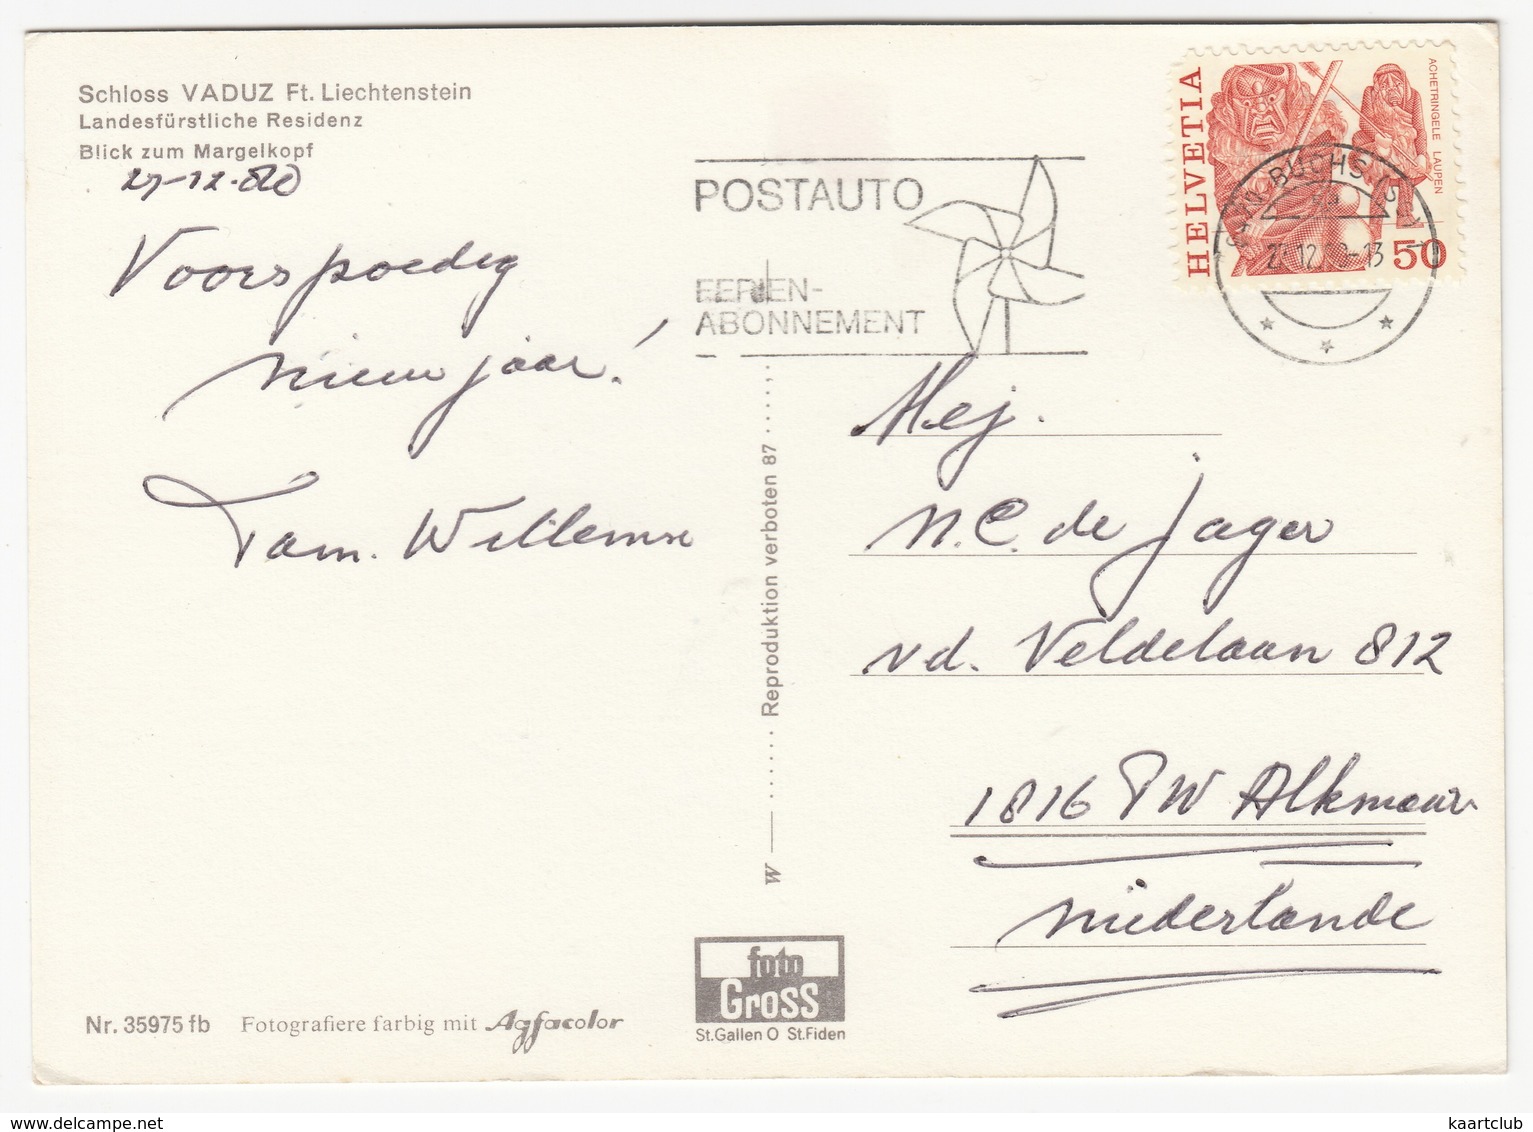 Schloss VADUZ Ft. Liechtenstein
Landesfürstliche Residenz
Blick zum Margelkopf
27-12-80
Voorspoedig
nieuwjaar!
Fam. Willemse
POSTAUTO
FERIEN-
ABONNEMENT
HELVETIA
ACHETRINGELE LAUPEN
50
BUCHS
Mej.
N.C. de Jager
vd. Veldelaan 812
1816 PW Alkmaar
Niederlande
W Reproduktion verboten 87
foto
Gross
St.Gallen O St.Fiden
Nr. 35975 fb Fotografiere farbig mit Agfacolor
kaartclub